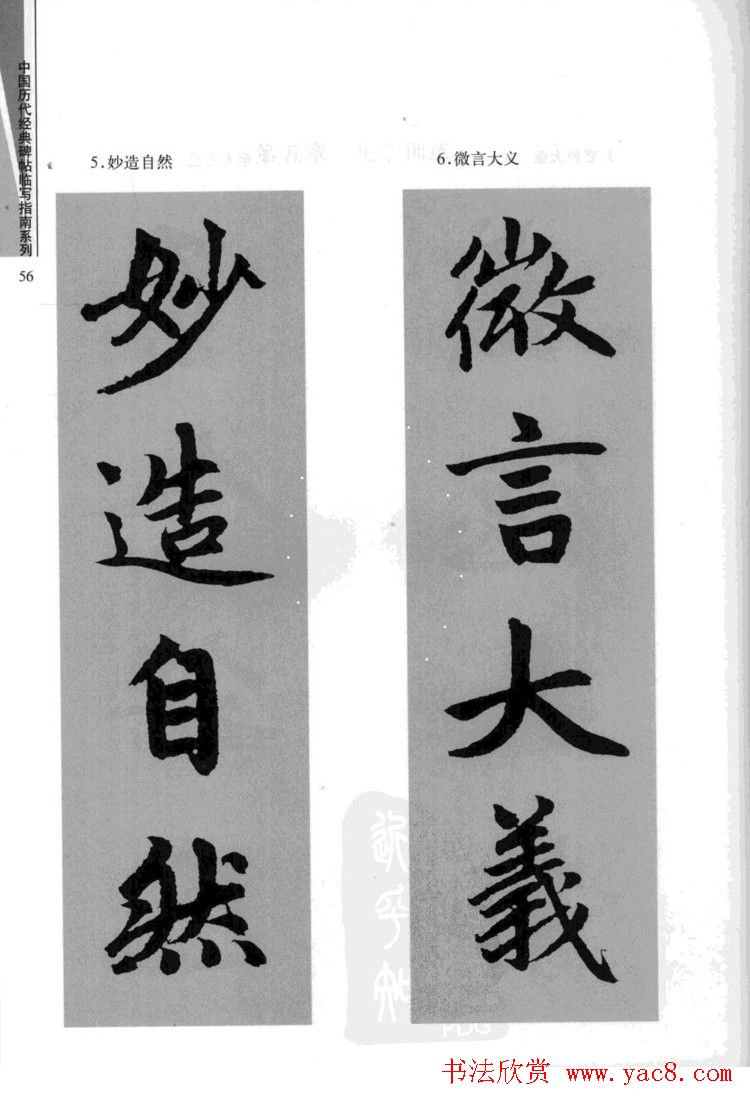 中国历代经典碑帖临写指南系列
56
5.妙造自然
妙造自然
6.微言大义
微言大義
书法欣赏 www.yac8.com